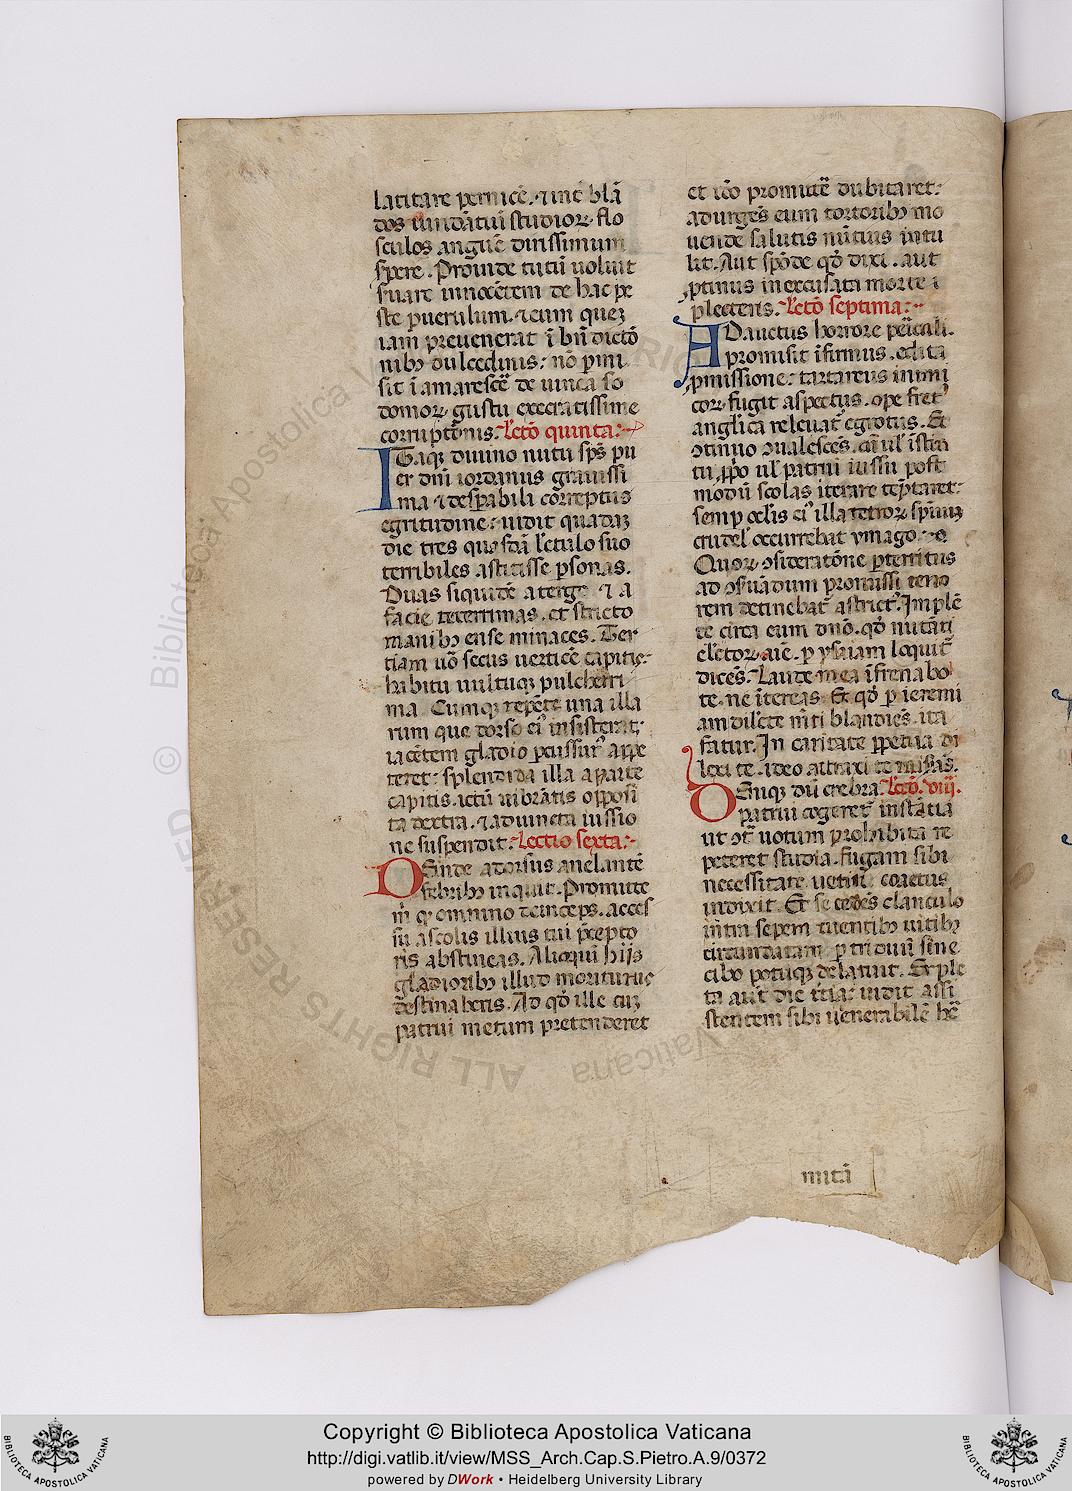 latitare pernicē. ⁊ int̄ blā
dos iundātiū studioꝝ flo
sculos anguē dirissimum
sꝑere. Proinde tutū uoluit
ẜuare innocētem de hac pe
ste puerulum. ⁊ eum queꝫ
iam preuenerat ī bn̄dictō
nibꝫ dulcedinis: nō ꝑmi
sit ī amarescē de uinea so
domoꝝ gustu execratissime
corruptōnis. Lectō quinta:
ITaqꝫ diuino nutu sp̄s pu
er dn̄i iordanus grauissi
ma ⁊ desꝑabili correptus
egritudine: uidit quadaꝫ
die tres quasdā lectulo suo
terribiles astitisse ꝑsonas.
Duas siquidē a tergo ⁊ a
facie teterrimas. et stricto
manibꝫ ense minaces. Ter
tiam uō secus uerticē capitis:
habitu uultuqꝫ pulcherri
ma. Cumqꝫ repēte una illa
rum que dorso eiꝰ insisterat:
iacētem gladio ꝑcussurꝰ appe
teret: splendida illa a parte
capitis. ictū uibrātis opposi
ta dextra. ⁊ adiuncta iussio
ne suspendit. Lectio sexta:
DEinde adorsus anelantē
febribꝫ inquit. Promitte
m̄ qꝫ omnino deinceps. acces
su ascolis illius tui p̄cepto
ris abstineas. Alioquī hiis
gladioribꝫ illud moriturus
destinaberis. Ad qđ ille cuꝫ
patrui metum pretenderet
et iđo promittē dubitaret:
adurgēs eum tortoribꝫ mo
uende salutis nūtius intu
lit. Aut spōde qđ dixi. aut
ꝓtinus inexcusata morte ī
plecteris. Lectō septima:
ADauctus horrore pericali.
promisit īfirmus. edita
ꝓmissione: tartareus inimi
coꝝ fugit aspectus. ope fretꝰ
anglica releuatꝰ egrotus. Et
ↄtinuo ↄualescēs. cū ul̓ istin
tu ꝓprio ul̓ patrui iussu post
modū scolas iterare tēptaret:
semꝑ oclīs eiꝰ illa tetroꝝ spirituū
crudelꝰ occurrebat ymago.
Quoꝝ ↄsideratōne ꝑterritus
ad ↄẜuādum promissi teno
rem detinebatꝰ astrictꝰ. Implē
te circa eum dn̄o. qđ nutāti
eletoꝝ aīe. ꝑ ysaiam loquitꝰ
dicēs. Laude mea īfrenabo
te. ne īntereas. Et qđ ꝑ ieremi
am dilecte mīti blandiēs. ita
fatur. In caritate ꝑpetua di
lexi te. ideo attraxi te misēas.
DEniqꝫ dū crebra Lectō. viij.
patrui cogeretꝰ instātia
ut ↄt̄ uotum prohibita re
peteret studia. fugam sibi
necessitate uetim̄ coactus
indixit. Et secedēs clanculo
intra sepem tuentibꝫ uitibꝫ
circundatam ꝑ triduū sine
cibo potuqꝫ delatuit. Exple
ta aut̄ die t̄tia: uidit assi
stentem sibi uenerabilē hē
nitā
Copyright © Biblioteca Apostolica Vaticana
http://digi.vatlib.it/view/MSS_Arch.Cap.S.Pietro.A.9/0372
powered by DWork • Heidelberg University Library
BIBLIOTECA APOSTOLICA VATICANA
BIBLIOTECA APOSTOLICA VATICANA